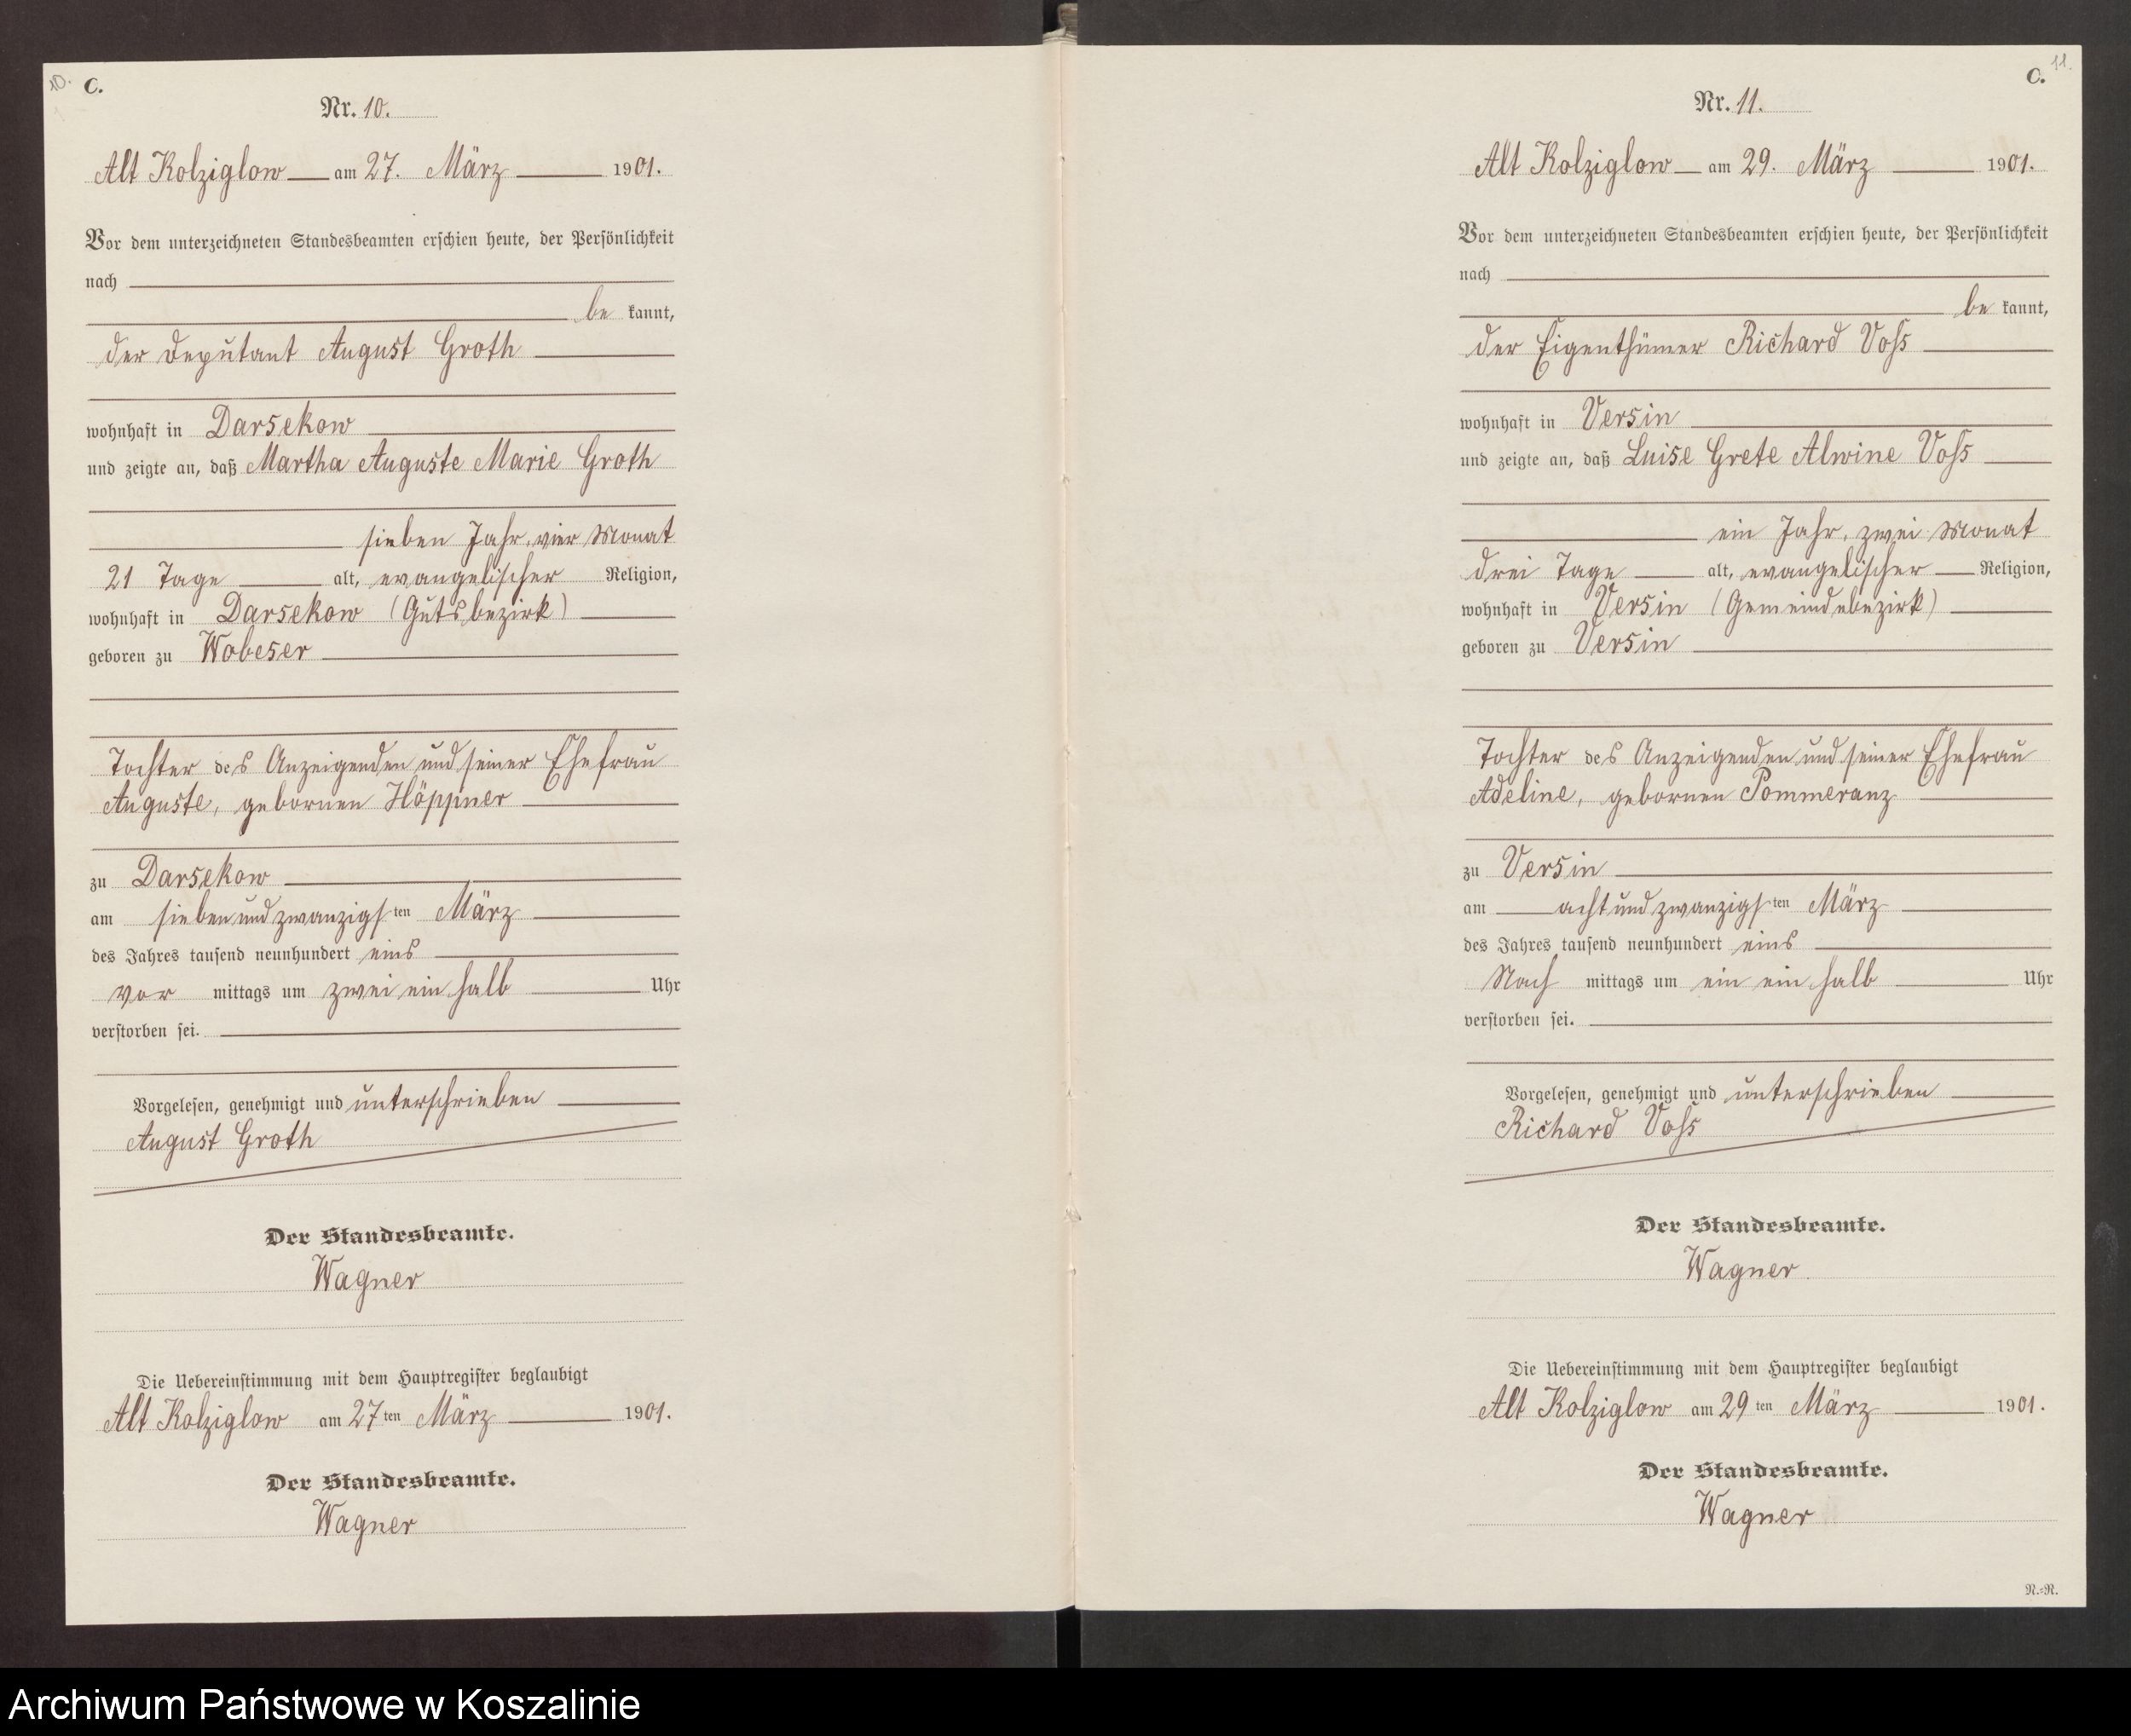 10.
C.
Nr. 10.
Alt Kolziglow am 27. März 1901.
Vor dem unterzeichneten Standesbeamten erschien heute, der Persönlichkeit
nach
be kannt,
der Deputant August Groth
wohnhaft in Darsekow
und zeigte an, daß Martha Auguste Marie Groth
sieben Jahr, vier Monat
21 Tage alt, evangelischer Religion,
wohnhaft in Darsekow (Gutsbezirk)
geboren zu Wobeser
Tochter des Anzeigenden und seiner Ehefrau
Auguste, gebornen Höppner
zu Darsekow
am siebenundzwanzigsten März
des Jahres tausend neunhundert eins
Vor mittags um zwei ein halb Uhr
verstorben sei.
Vorgelesen, genehmigt und unterschrieben
August Groth
Der Standesbeamte.
Wagner
Die Uebereinstimmung mit dem Hauptregister beglaubigt
Alt Kolziglow am 27ten März 1901.
Der Standesbeamte.
Wagner
C.
11.
Nr. 11.
Alt Kolziglow am 29. März 1901.
Vor dem unterzeichneten Standesbeamten erschien heute, der Persönlichkeit
nach
be kannt,
der Eigenthümer Richard Voß
wohnhaft in Versin
und zeigte an, daß Luise Grete Alwine Voß
ein Jahr, zwei Monat
drei Tage alt, evangelischer Religion,
wohnhaft in Versin (Gemeindebezirk)
geboren zu Versin
Tochter des Anzeigenden und seiner Ehefrau
Adeline, gebornen Pommeranz
zu Versin
am achtundzwanzigsten März
des Jahres tausend neunhundert eins
Nach mittags um ein ein halb Uhr
verstorben sei.
Vorgelesen, genehmigt und unterschrieben
Richard Voß
Der Standesbeamte.
Wagner
Die Uebereinstimmung mit dem Hauptregister beglaubigt
Alt Kolziglow am 29ten März 1901.
Der Standesbeamte.
Wagner
N.=N.
Archiwum Państwowe w Koszalinie